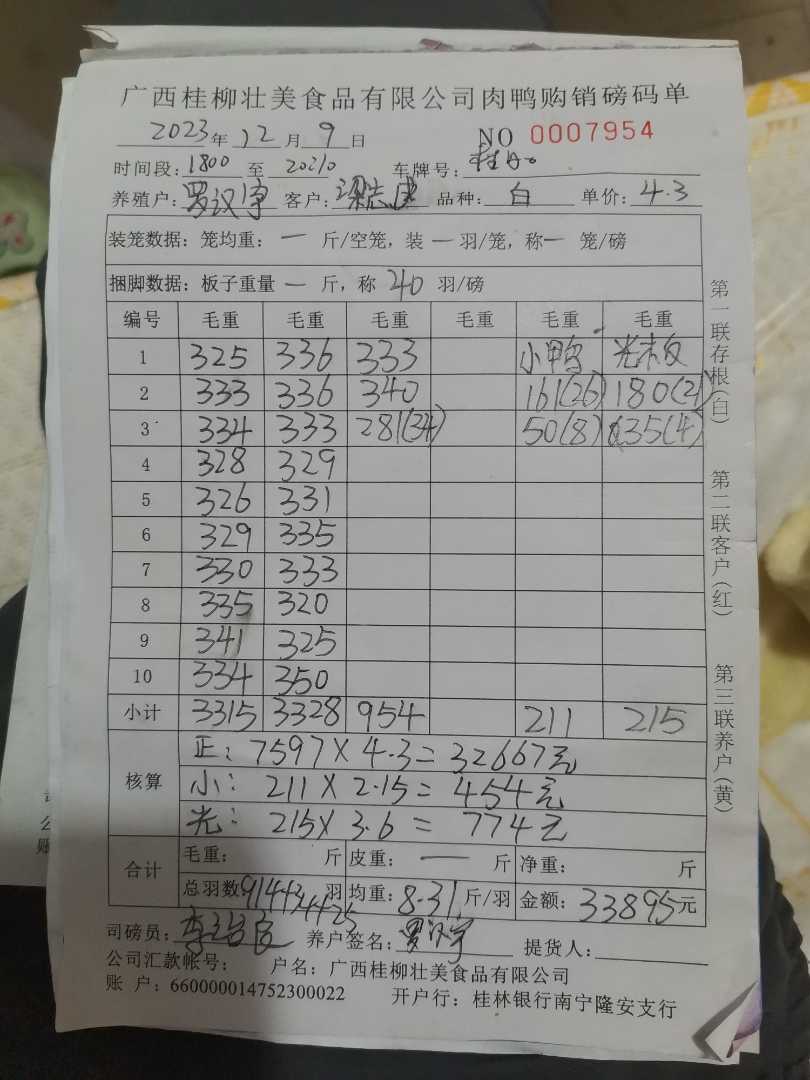 广西桂柳壮美食品有限公司肉鸭购销磅码单
2023年12月9日 NO 0007954
时间段:1800 至 20210 车牌号:
养殖户: 罗汉宇 客户: 梁志 品种: 白 单价: 4.3
装笼数据:笼均重: 一 斤/空笼,装 一 羽/笼,称 一 笼/磅
捆脚数据:板子重量 一 斤,称 40 羽/磅
编号 毛重 毛重 毛重 毛重 毛重 毛重
1 325 336 333 小鸭 光
2 333 336 340 161(26) 180(21)
3 334 333 281(34) 50(8) 35(4)
4 328 329
5 326 331
6 329 335
7 330 333
8 335 320
9 341 325
10 334 350
小计 3315 3328 954 211 215
核算
正: 7597×4.3=32667元
小: 211×2.15=454元
光: 215×3.6=774元
合计
毛重: 斤 皮重: 一 斤 净重: 斤
总羽数 914 羽 均重: 8.31 斤/羽 金额: 33895元
司磅员: 养户签名: 罗汉宇 提货人:
公司汇款帐号: 户名:广西桂柳壮美食品有限公司
账 户:660000014752300022 开户行:桂林银行南宁隆安支行
第一联存根(白)
第二联客户(红)
第三联养户(黄)